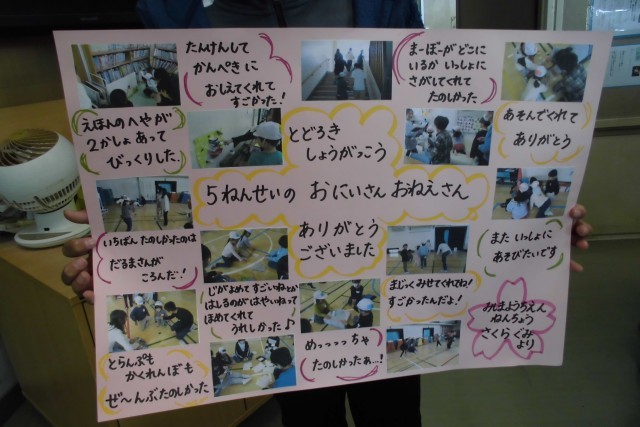 たんけんして
かんぺきに
おしえてくれて
すごかった!
まーぼーがどこに
いるか いっしょに
さがしてくれて
たのしかった
えほんのへやが
2かしょ あって
びっくりした.
とどろき
しょうがっこう
あそんでくれて
ありがとう
5ねんせいの おにいさん おねえさん
ありがとう
ございました
いちばん たのしかったのは
だるまさんが
ころんだ!
じがよめて すごいねとか
はしるのが はやいねって
ほめてくれて
うれしかった♪
まじっくみせてくれてね!
すごかったんだよ!
また いっしょに
あそびたいです
とらんぷも
かくれんぼも
ぜ〜んぶたのしかった
めっっっっちゃ
たのしかったぁ…!
ようちえん
ねんちょう
さくらぐみ
より